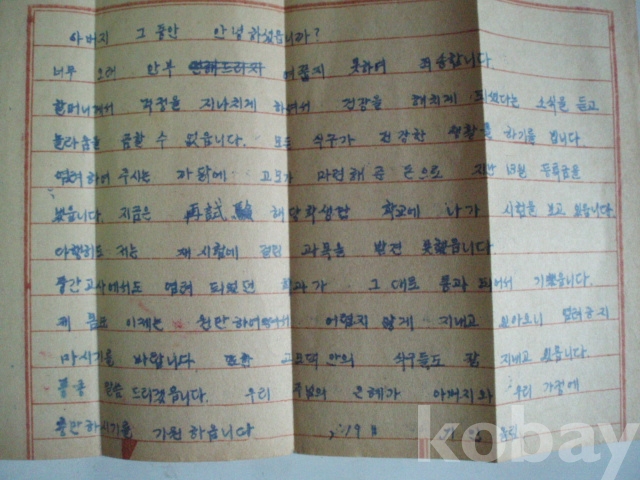 아버지 그동안 안녕하셨읍니까?
너무 오래 안부 전해드리지 여쭙지 못하여 죄송합니다
할머니께서 걱정을 지나치게 하여서 건강을 해치게 되셨다는 소식을 듣고
놀라움을 금할 수 없읍니다. 모든 식구가 건강한 생활을 하기를 빕니다.
염려하여 주시는 까닭에 고모가 마련해준 돈으로 지난 13일 등록금을
냈읍니다. 지금은 再試驗 해당학생만 학교에 나가 시험을 보고 있읍니다
다행히도 저는 재시험에 걸린 과목을 발견 못했읍니다
중간고사에서도 염려 되었던 학과가 그대로 통과 되어서 기뻤읍니다.
제 몸도 이제는 원만하여져서 어렵지 않게 지내고 있아오니 염려하지
마시기를 바랍니다 또한 고모댁안의 식구들도 잘 지내고 있읍니다.
종종 말씀 드리겠읍니다. 우리 주님의 은혜가 아버지와 우리 가정에
충만하시기를 기원하옵니다 19 올림
kobay